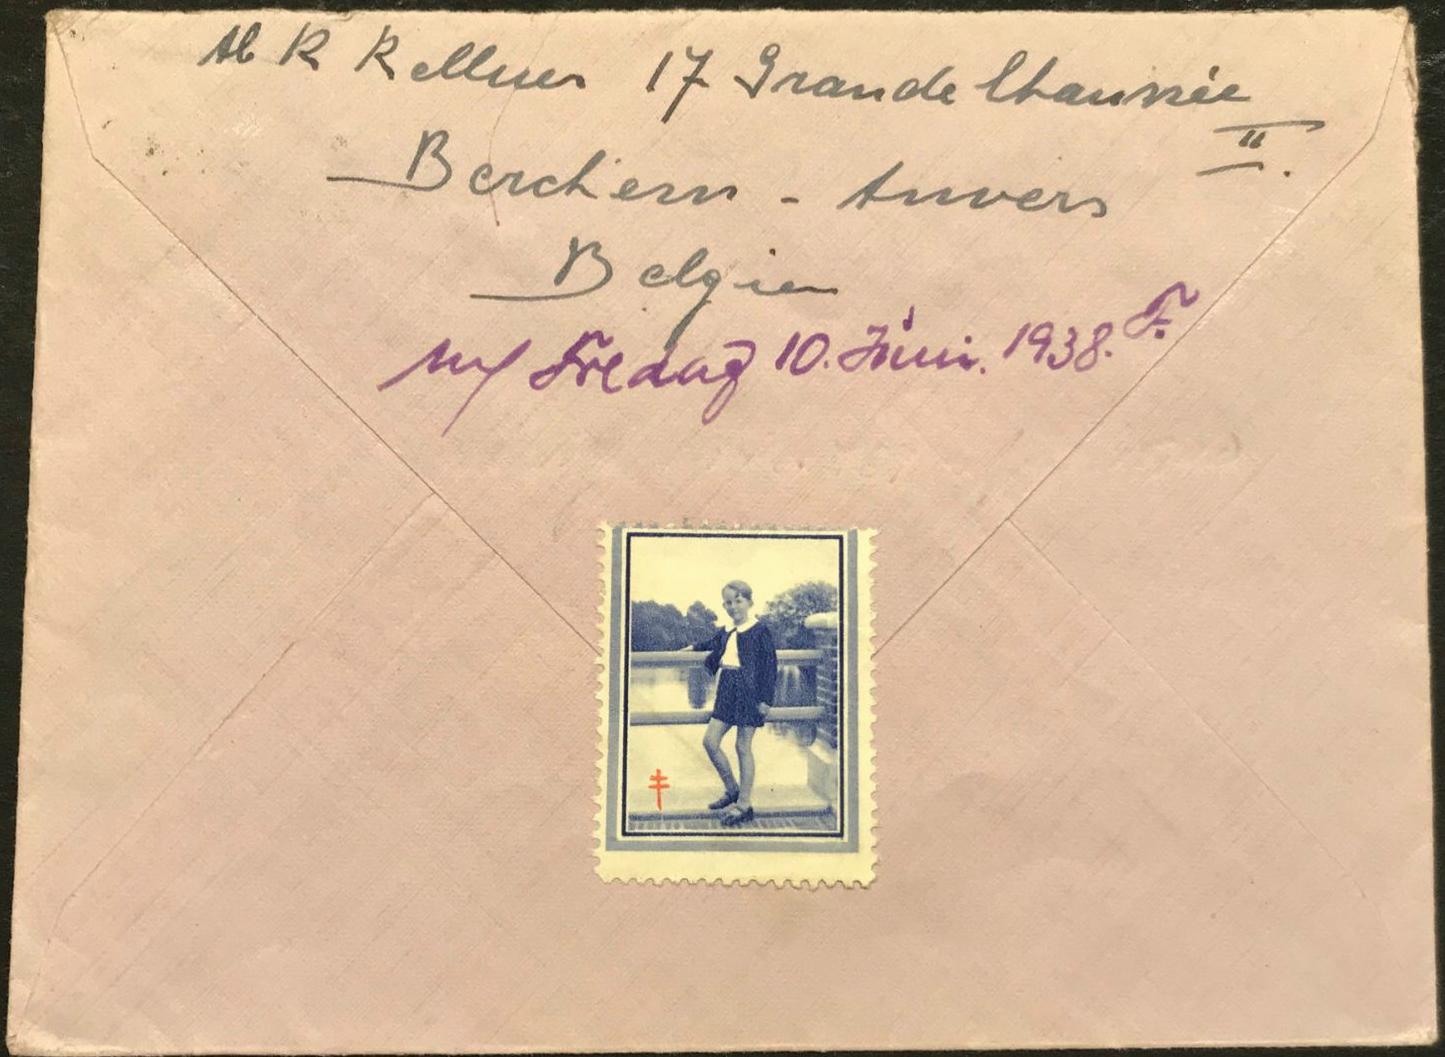 Ab R Kellner 17 Grande Chaussée
II.
Berchem - Anvers
Belgien
Fredag 10. Juni. 1938. F.